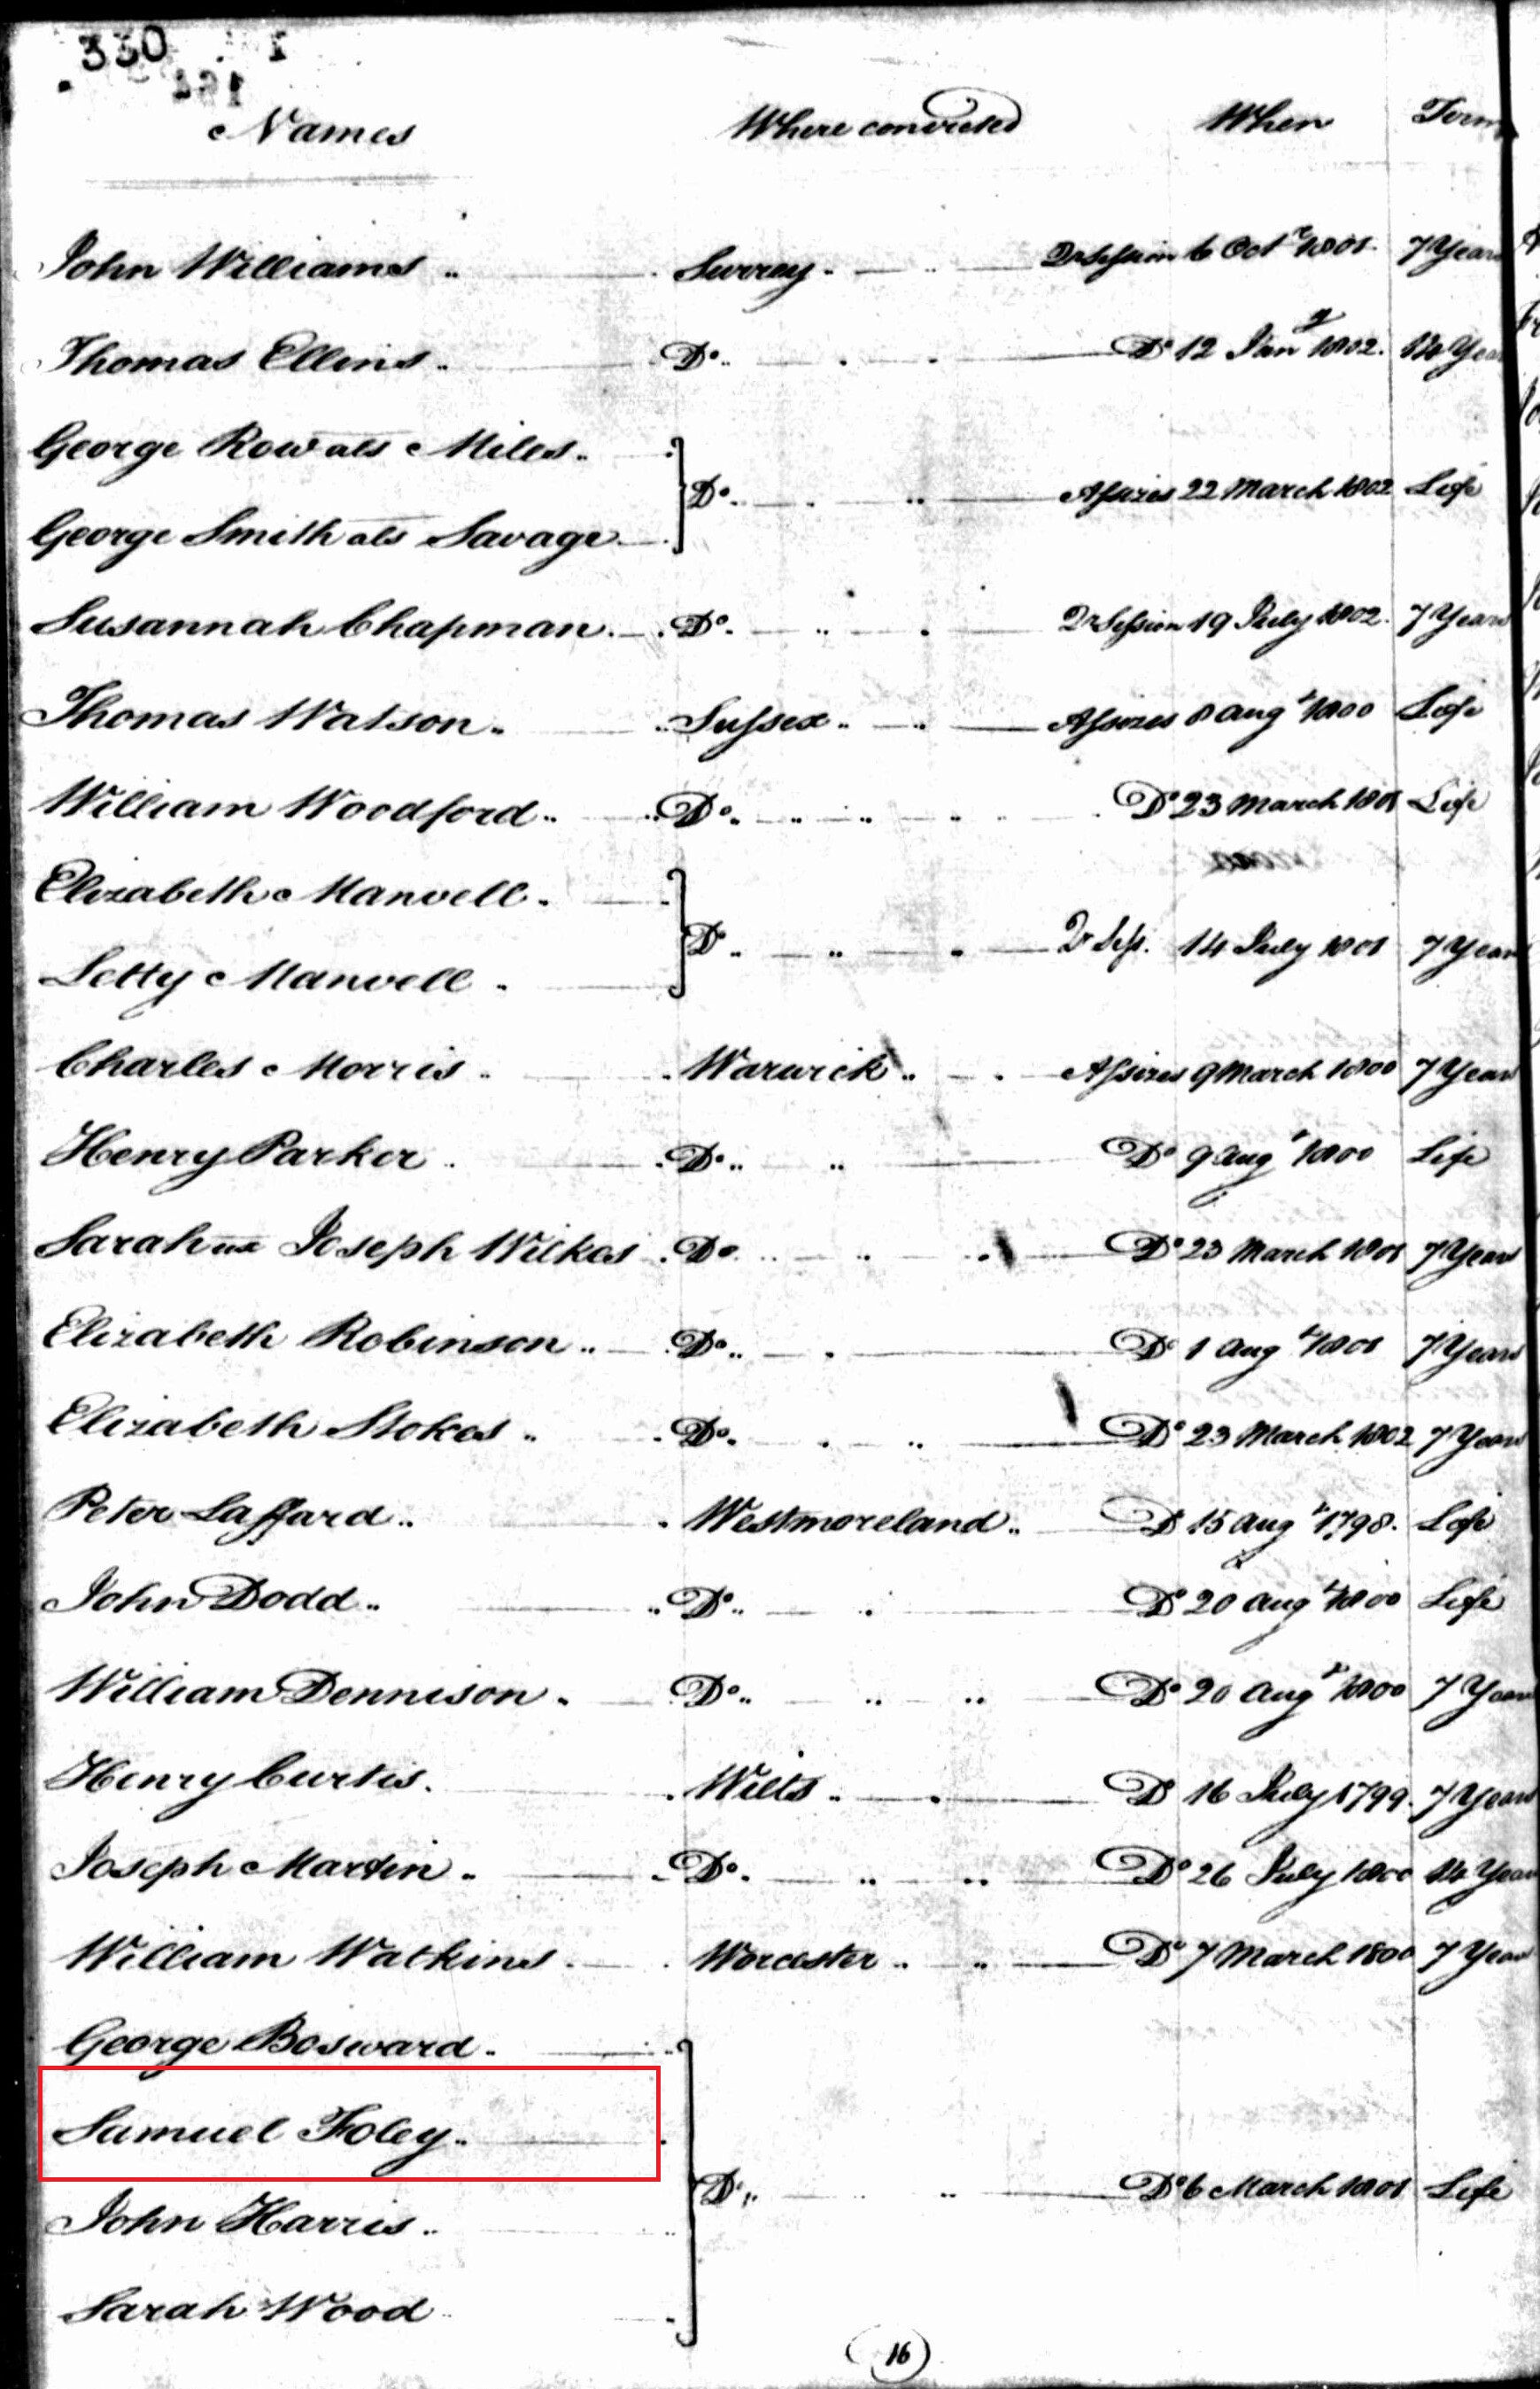 330
Names Where convicted When Term
John Williams Surrey Qr Session 6 Octr 1801 7 Years
Thomas Ellins Do Do 12 Jany 1802 14 Years
George Row als Miles
Do Assizes 22 March 1802 Life
George Smith als Savage
Susannah Chapman Do Qr Session 19 July 1802 7 Years
Thomas Watson Sussex Assizes 8 Augt 1800 Life
William Woodford Do Do 23 March 1801 Life
Elizabeth Manvell
Do Qr Sess. 14 July 1801 7 Years
Letty Manvell
Charles Morris Warwick Assizes 9 March 1800 7 Years
Henry Parker Do Do 9 Augt 1800 Life
Sarah ux Joseph Wilkes Do Do 23 March 1801 7 Years
Elizabeth Robinson Do Do 1 Augt 1801 7 Years
Elizabeth Stokes Do Do 23 March 1802 7 Years
Peter Laffard Westmoreland Do 15 Augt 1798 Life
John Dodd Do Do 20 Augt 1800 Life
William Dennison Do Do 20 Augt 1800 7 Years
Henry Curtis Wilts Do 16 July 1799 7 Years
Joseph Martin Do Do 26 July 1800 14 Years
William Watkins Worcester Do 7 March 1800 7 Years
George Bosward
Samuel Foley
Do Do 6 March 1801 Life
John Harris
Sarah Wood
16